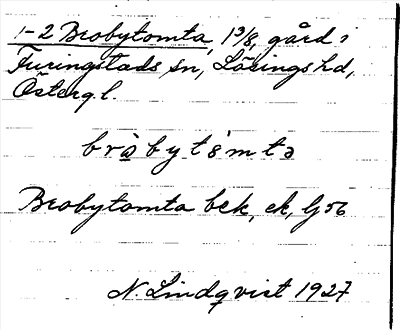 1-2 Brobytomta, 1 3/8, gård i
Furingstads sn, Lösings hd,
Österg.l.
bròbytòmtə
Brobytomta bek, ek, Gj 56
N. Lindqvist 1927